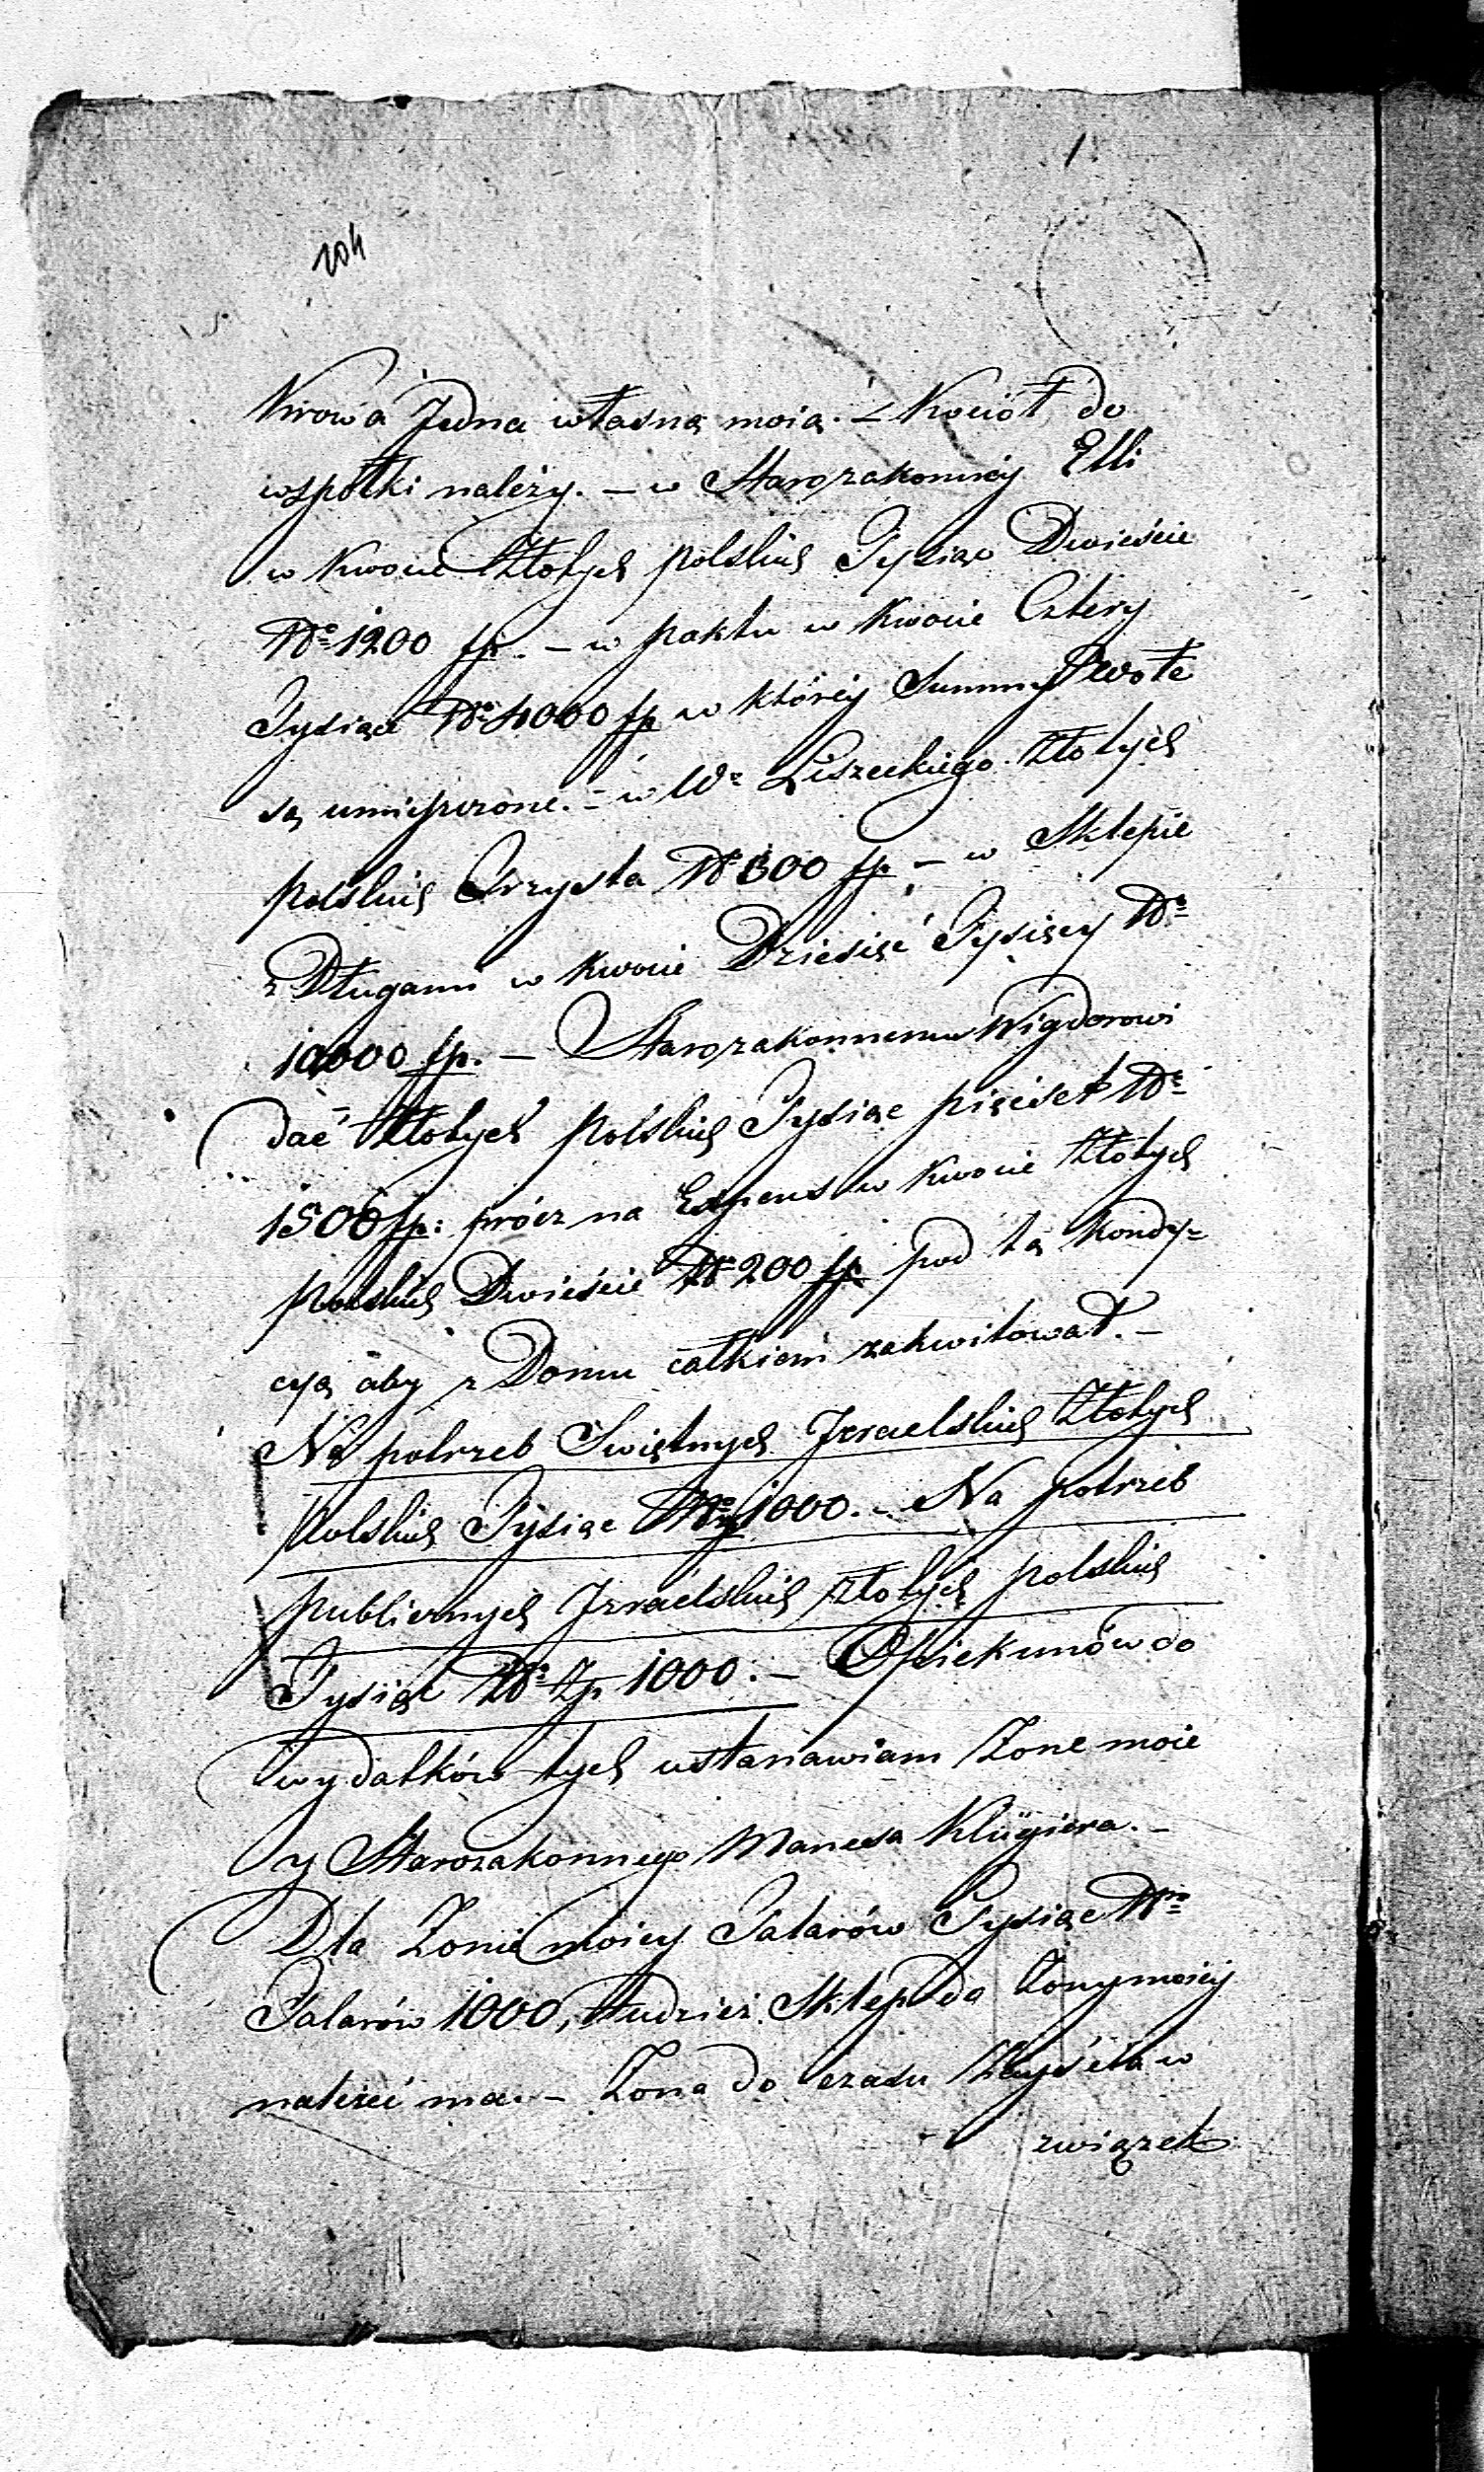 1
204
Krowa Jedna własną moią. – Kocioł do
wspołki należy. – w Starozakonnéy Elli
w Kwocie Złotych polskich Tysiąc Dwieście
Nº 1200 fp. – w paktu w Kwocie Cztery
Tysiące Nº 4000 fp w któréy Summy Wołe
są umieszczone. – w Wº Liszeckiego Złotych
polskich Trzysta Nº 300 fp. – w Sklepie
z Długami w Kwocie Dziesięć Tysięcy Nº
10,000 fp. – Starozakonnemu Wigdorowi
dać Złotych polskich Tysiąc pięćset Nº
1500 fp: prócz na Expens w Kwocie Złotych
polskich Dwieście Nº 200 fp. pod tą kondy=
cyą aby z Domu całkiem zakwitował. –
Na potrzeb Swiętnych Izraelskich Złotych
polskich Tysiąc Nº 1000. – Na potrzeb
publicznych Izraelskich złotych polskich
Tysiąc Nº Zp. 1000. – Opiekunów do
wydatków tych ustanawiam Zone moie
y Starozakonnego Manesa Klugiera. –
Dla Zonie moiey Talarów Tysiąc Nro
Talarów 1000, tudzież Sklep do Zony moiéy
należeć ma. – Zona do czasu w
związek